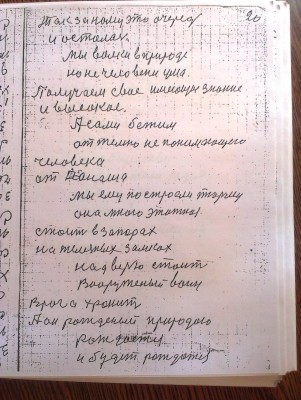 так за кому это очередь 20
и остался.
мы волки в природе
но не человеки ума.
Получаем свое имеющее знание
и высокое.
А сами бежим
от темно не понимающего
человека
от
мы ему построели тюрму
она много этапна
стоит в запорах
на железных замках
на дверю стоит
Вооруженый воин
Врага хронит
А он рожденый природою
рождается
и будет рождатся